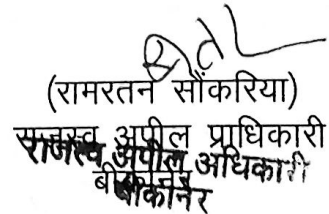 (रामरतन सौंकरिया)
राजस्व अपील प्राधिकारी
राजस्व अपील अधिकारी
बीकानेर
बीकानेर